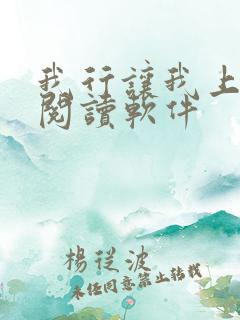 我行讓我上
閱讀軟件
楊從波
未經同意禁止轉載